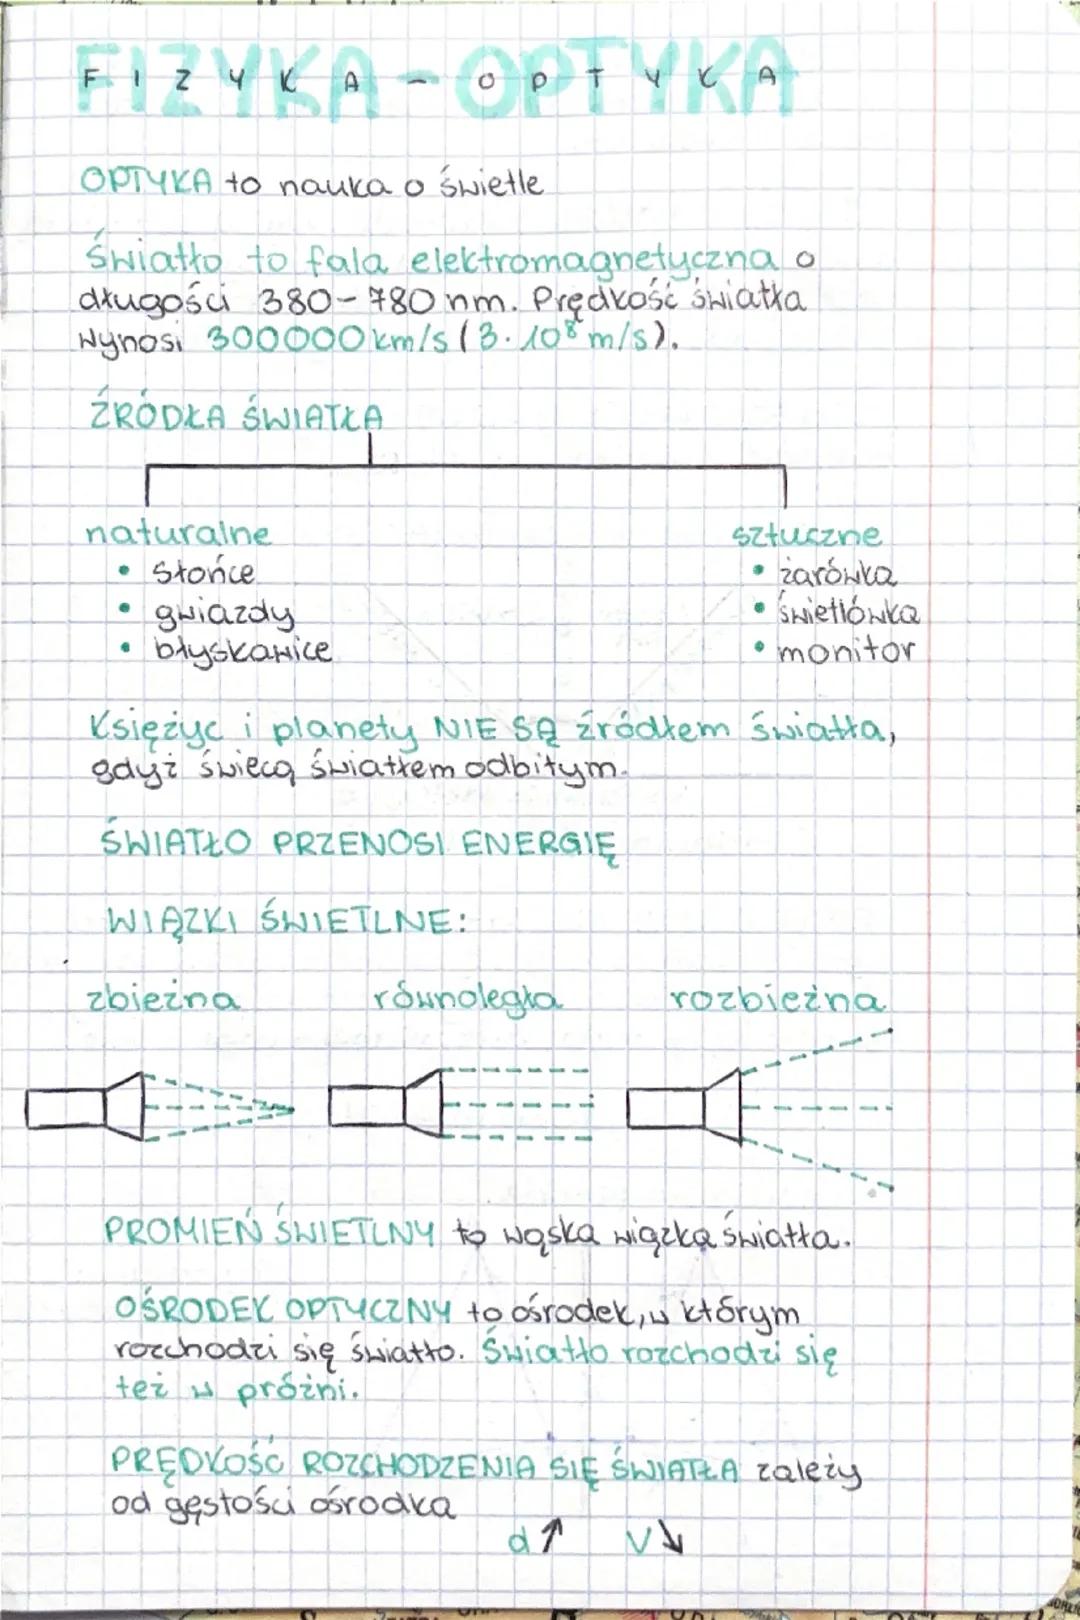 FIZYKA - OPTYKA
OPTYKA to nauka o świetle
Światło to fala elektromagnetyczna o
długości 380-780 nm. Prędkość światła
wynosi 300000 km/s (3·10⁸ m/s).
ŹRÓDŁA ŚWIATŁA
naturalne sztuczne
• słońce • żarówka
• gwiazdy • świetlówka
• błyskawice • monitor
Księżyc i planety NIE SĄ źródłem światła,
gdyż świecą światłem odbitym.
ŚWIATŁO PRZENOSI ENERGIĘ
WIĄZKI ŚWIETLNE:
zbieżna równoległa rozbieżna
PROMIEŃ ŚWIETLNY to wąska wiązka światła.
OŚRODEK OPTYCZNY to ośrodek, w którym
rozchodzi się światło. Światło rozchodzi się
też w próżni.
PRĘDKOŚĆ ROZCHODZENIA SIĘ ŚWIATŁA zależy
od gęstości ośrodka
d↑ v↘